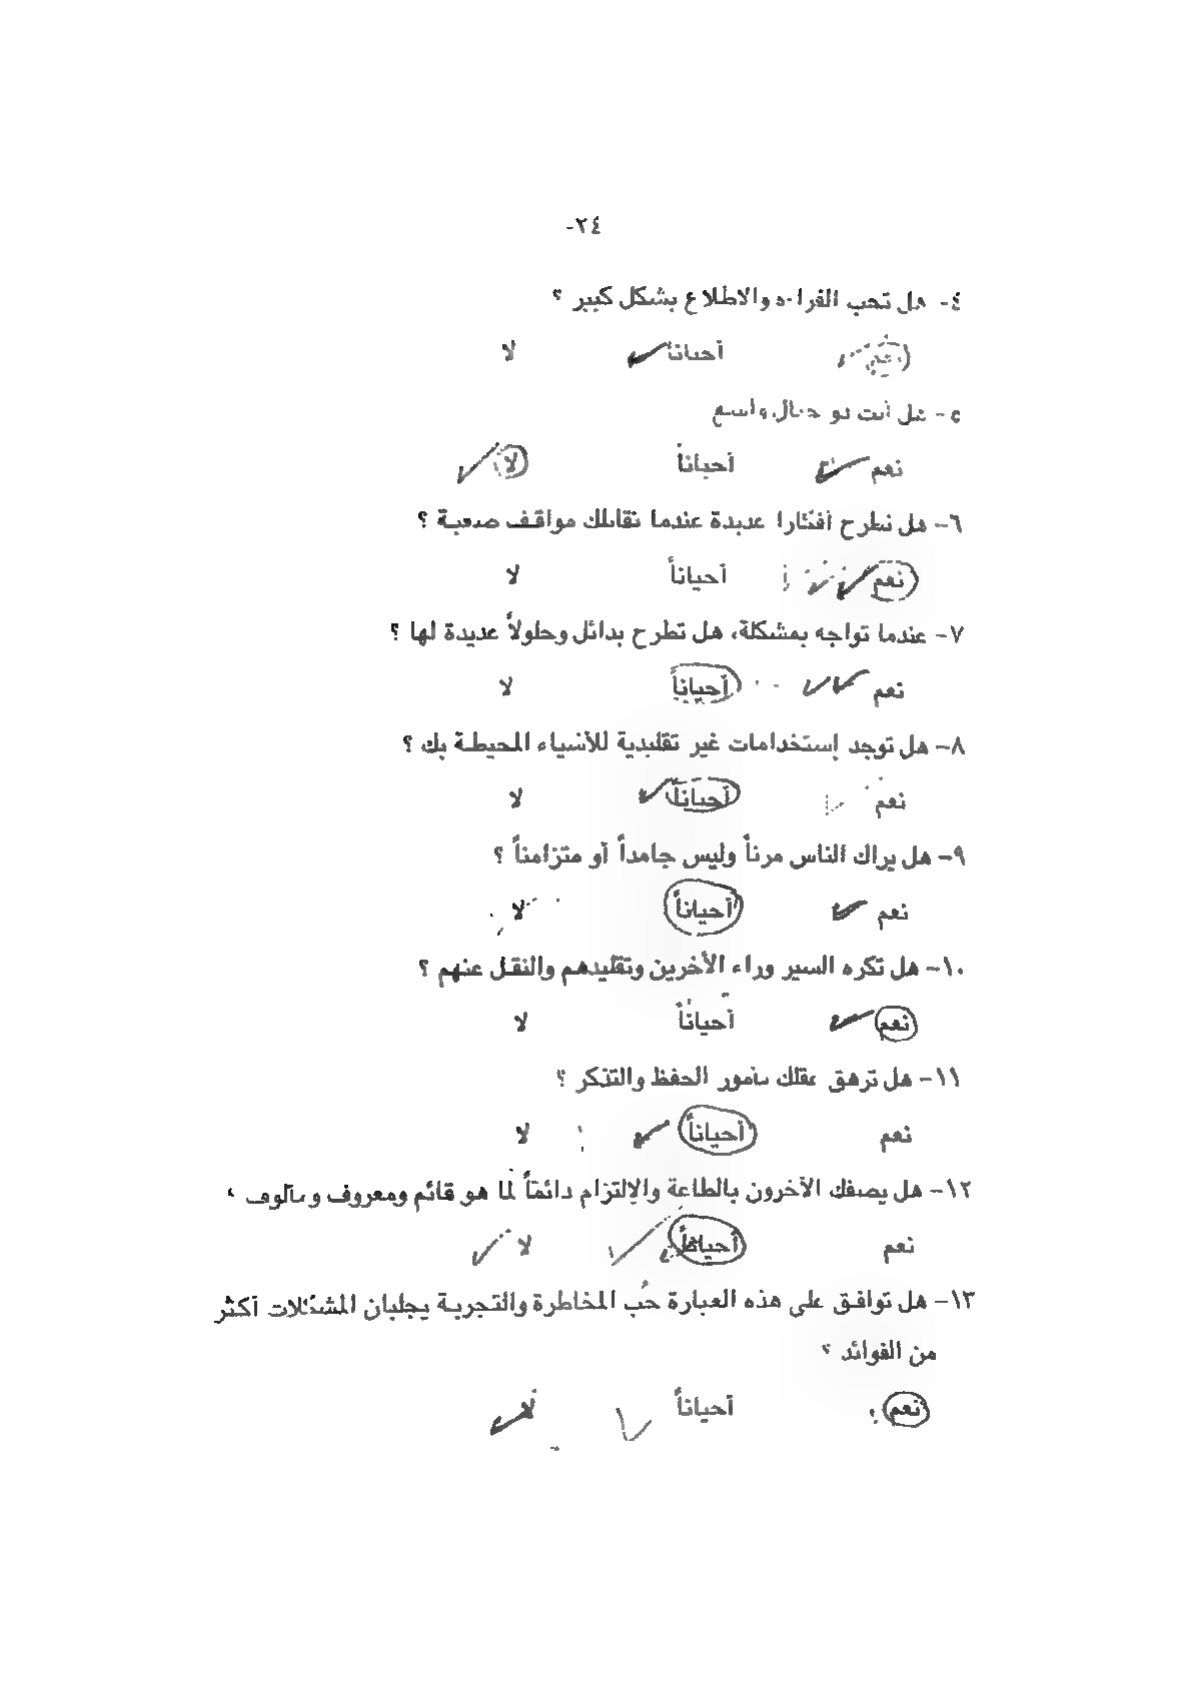 -٢٤
٤- هل تحب القراءة والاطلاع بشكل كبير ؟
نعم أحياناً لا
٥- هل أنت ذو خيال واسع
نعم أحياناً لا
٦- هل تطرح أفكارا عديدة عندما تقابلك مواقف صعبة ؟
نعم أحياناً لا
٧- عندما تواجه بمشكلة، هل تطرح بدائل وحلولاً عديدة لها ؟
نعم أحياناً لا
٨- هل توجد إستخدامات غير تقليدية للأشياء المحيطة بك ؟
نعم أحياناً لا
٩- هل يراك الناس مرناً وليس جامداً أو متزامناً ؟
نعم أحياناً لا
١٠- هل تكره السير وراء الأخرين وتقليدهم والنقل عنهم ؟
نعم أحياناً لا
١١- هل ترهق عقلك بأمور الحفظ والتذكر ؟
نعم أحياناً لا
١٢- هل يصفك الآخرون بالطاعة والإلتزام دائماً لما هو قائم ومعروف ومألوف ؟
نعم أحياناً لا
١٣- هل توافق على هذه العبارة حُب المخاطرة والتجربة يجلبان المشكلات أكثر
من الفوائد ؟
نعم أحياناً لا